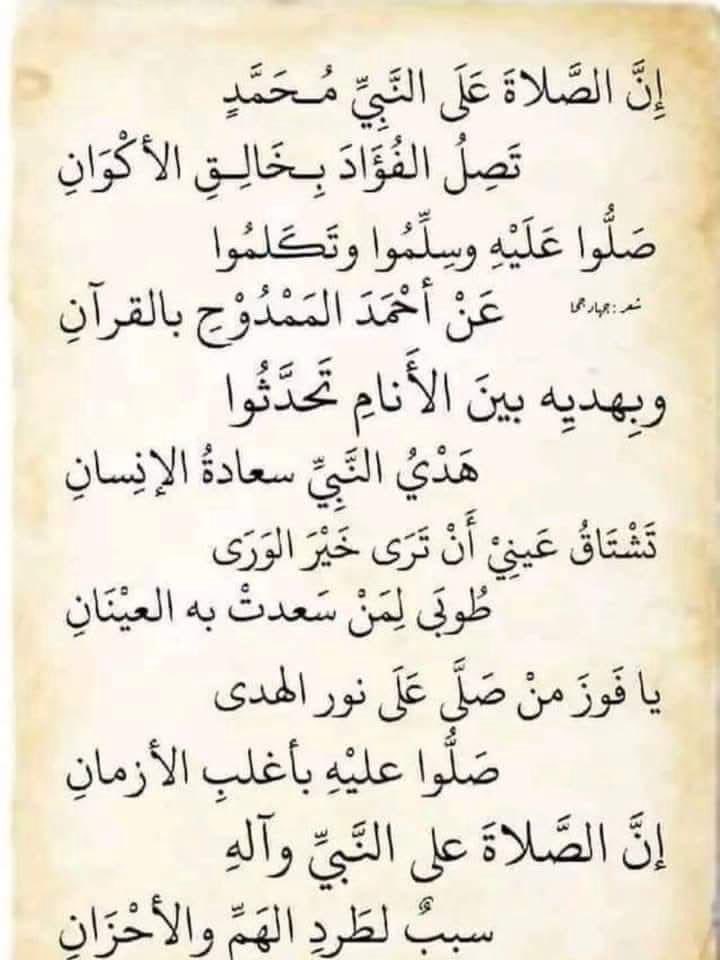 إِنَّ الصَّلاةَ عَلَى النَّبِيِّ مُـحَمَّدٍ
تَصِلُ الفُؤَادَ بِـخَالِـقِ الأكْوَانِ
صَلُّوا عَلَيْهِ وسِلِّمُوا وتَكَلمُوا
عَنْ أحْمَدَ المَمْدُوْحِ بالقرآنِ
شعر :
وبِهديِه بينَ الأَنامِ تَحدَّثُوا
هَدْيُ النَّبِيِّ سعادةُ الإنِسانِ
تَشْتَاقُ عَينِيْ أَنْ تَرَى خَيْرَ الوَرَى
طُوبَى لِمَنْ سَعدتْ به العيْنَانِ
يا فَوزَ منْ صَلَّى عَلَى نور الهدى
صَلُّوا عليْهِ بأغلبِ الأزمانِ
إنَّ الصَّلاةَ على النَّبِيِّ وآلهِ
سببٌ لطَردِ الهَمِّ والأحْزَانِ